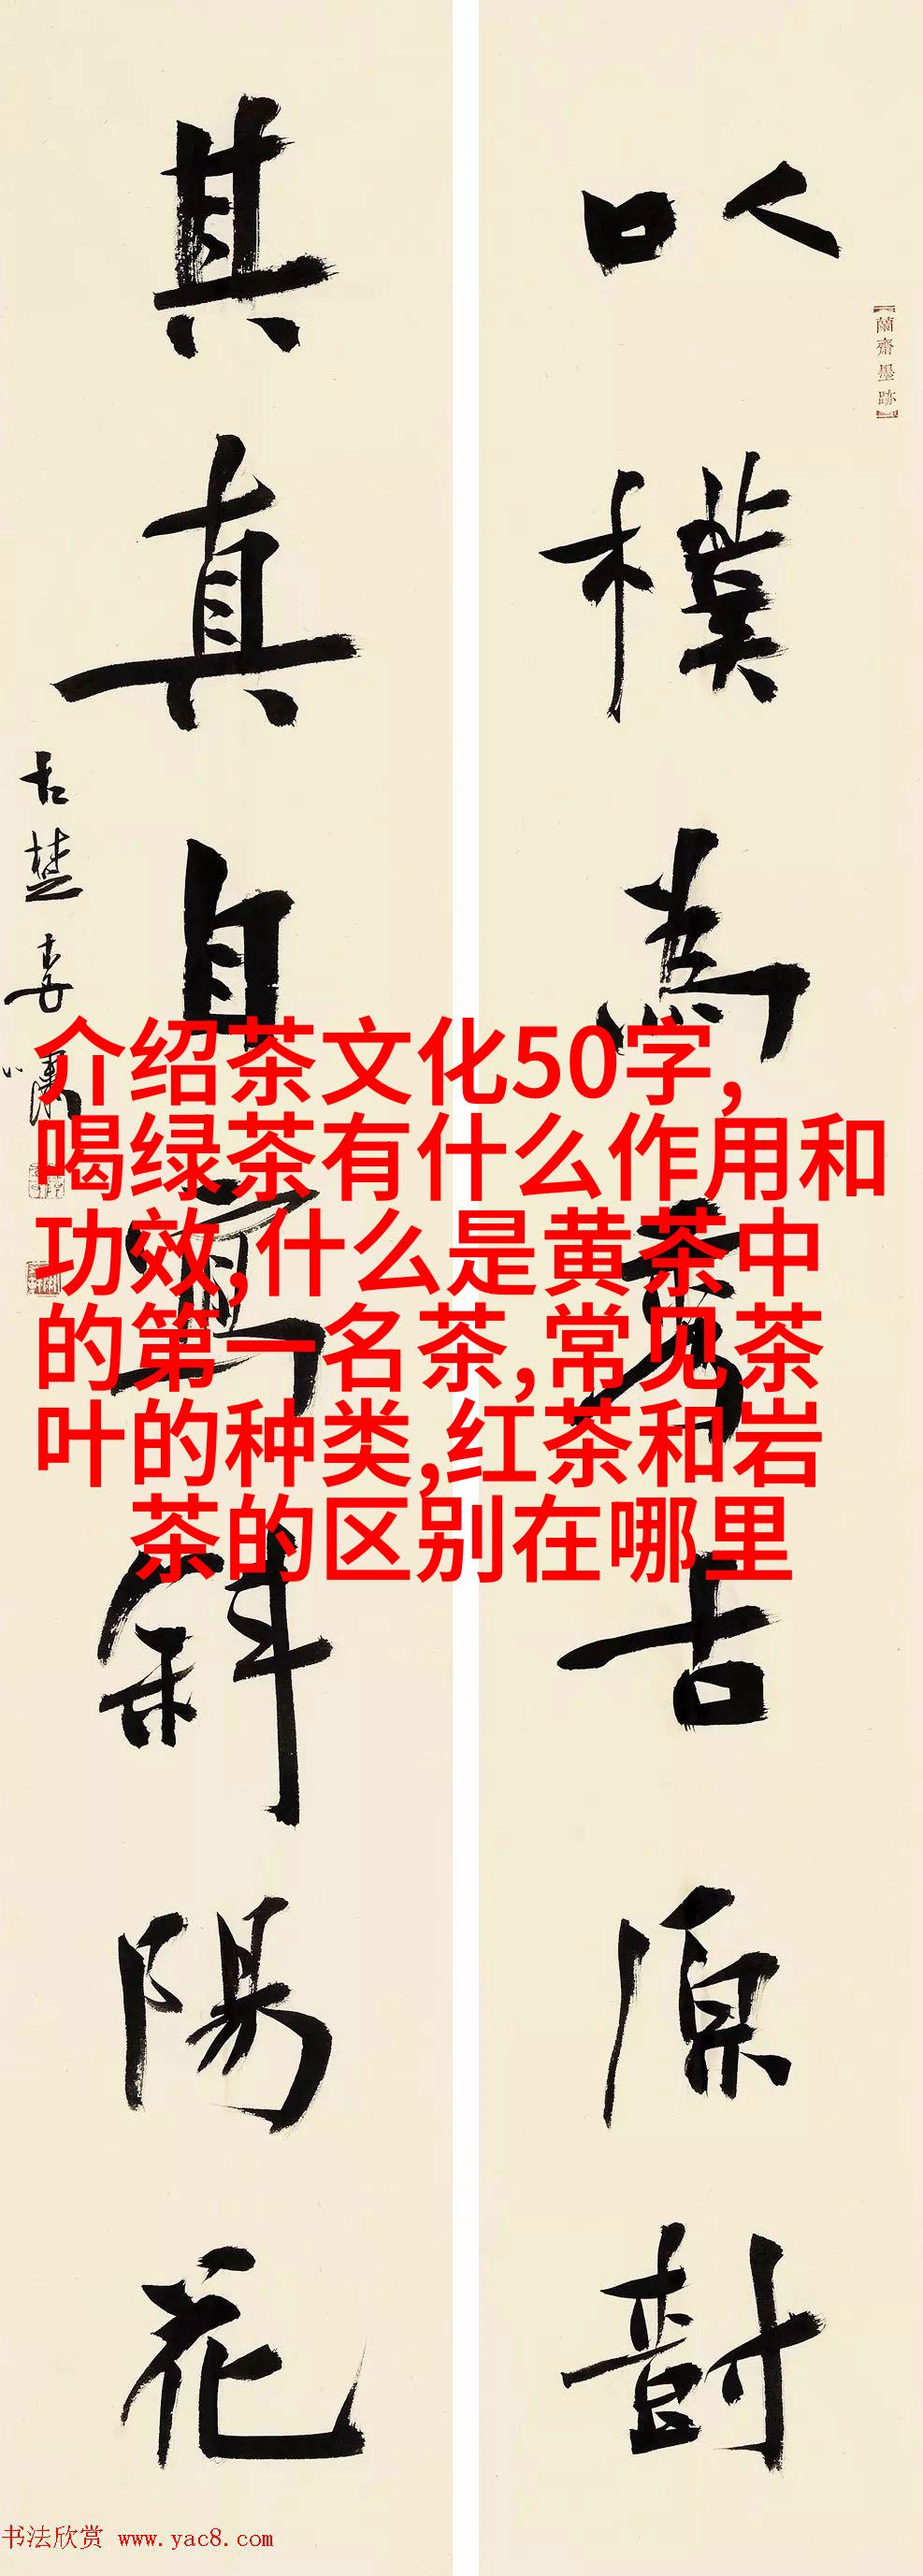 以樸為秀古原樹
其真自寫斜陽花
【蘭齋墨跡】
古楚
介绍茶文化50字,
喝绿茶有什么作用和
功效,什么是黄茶中
的第一名茶,常见茶
叶的种类,红茶和岩
茶的区别在哪里
书法欣赏 www.yac8.com